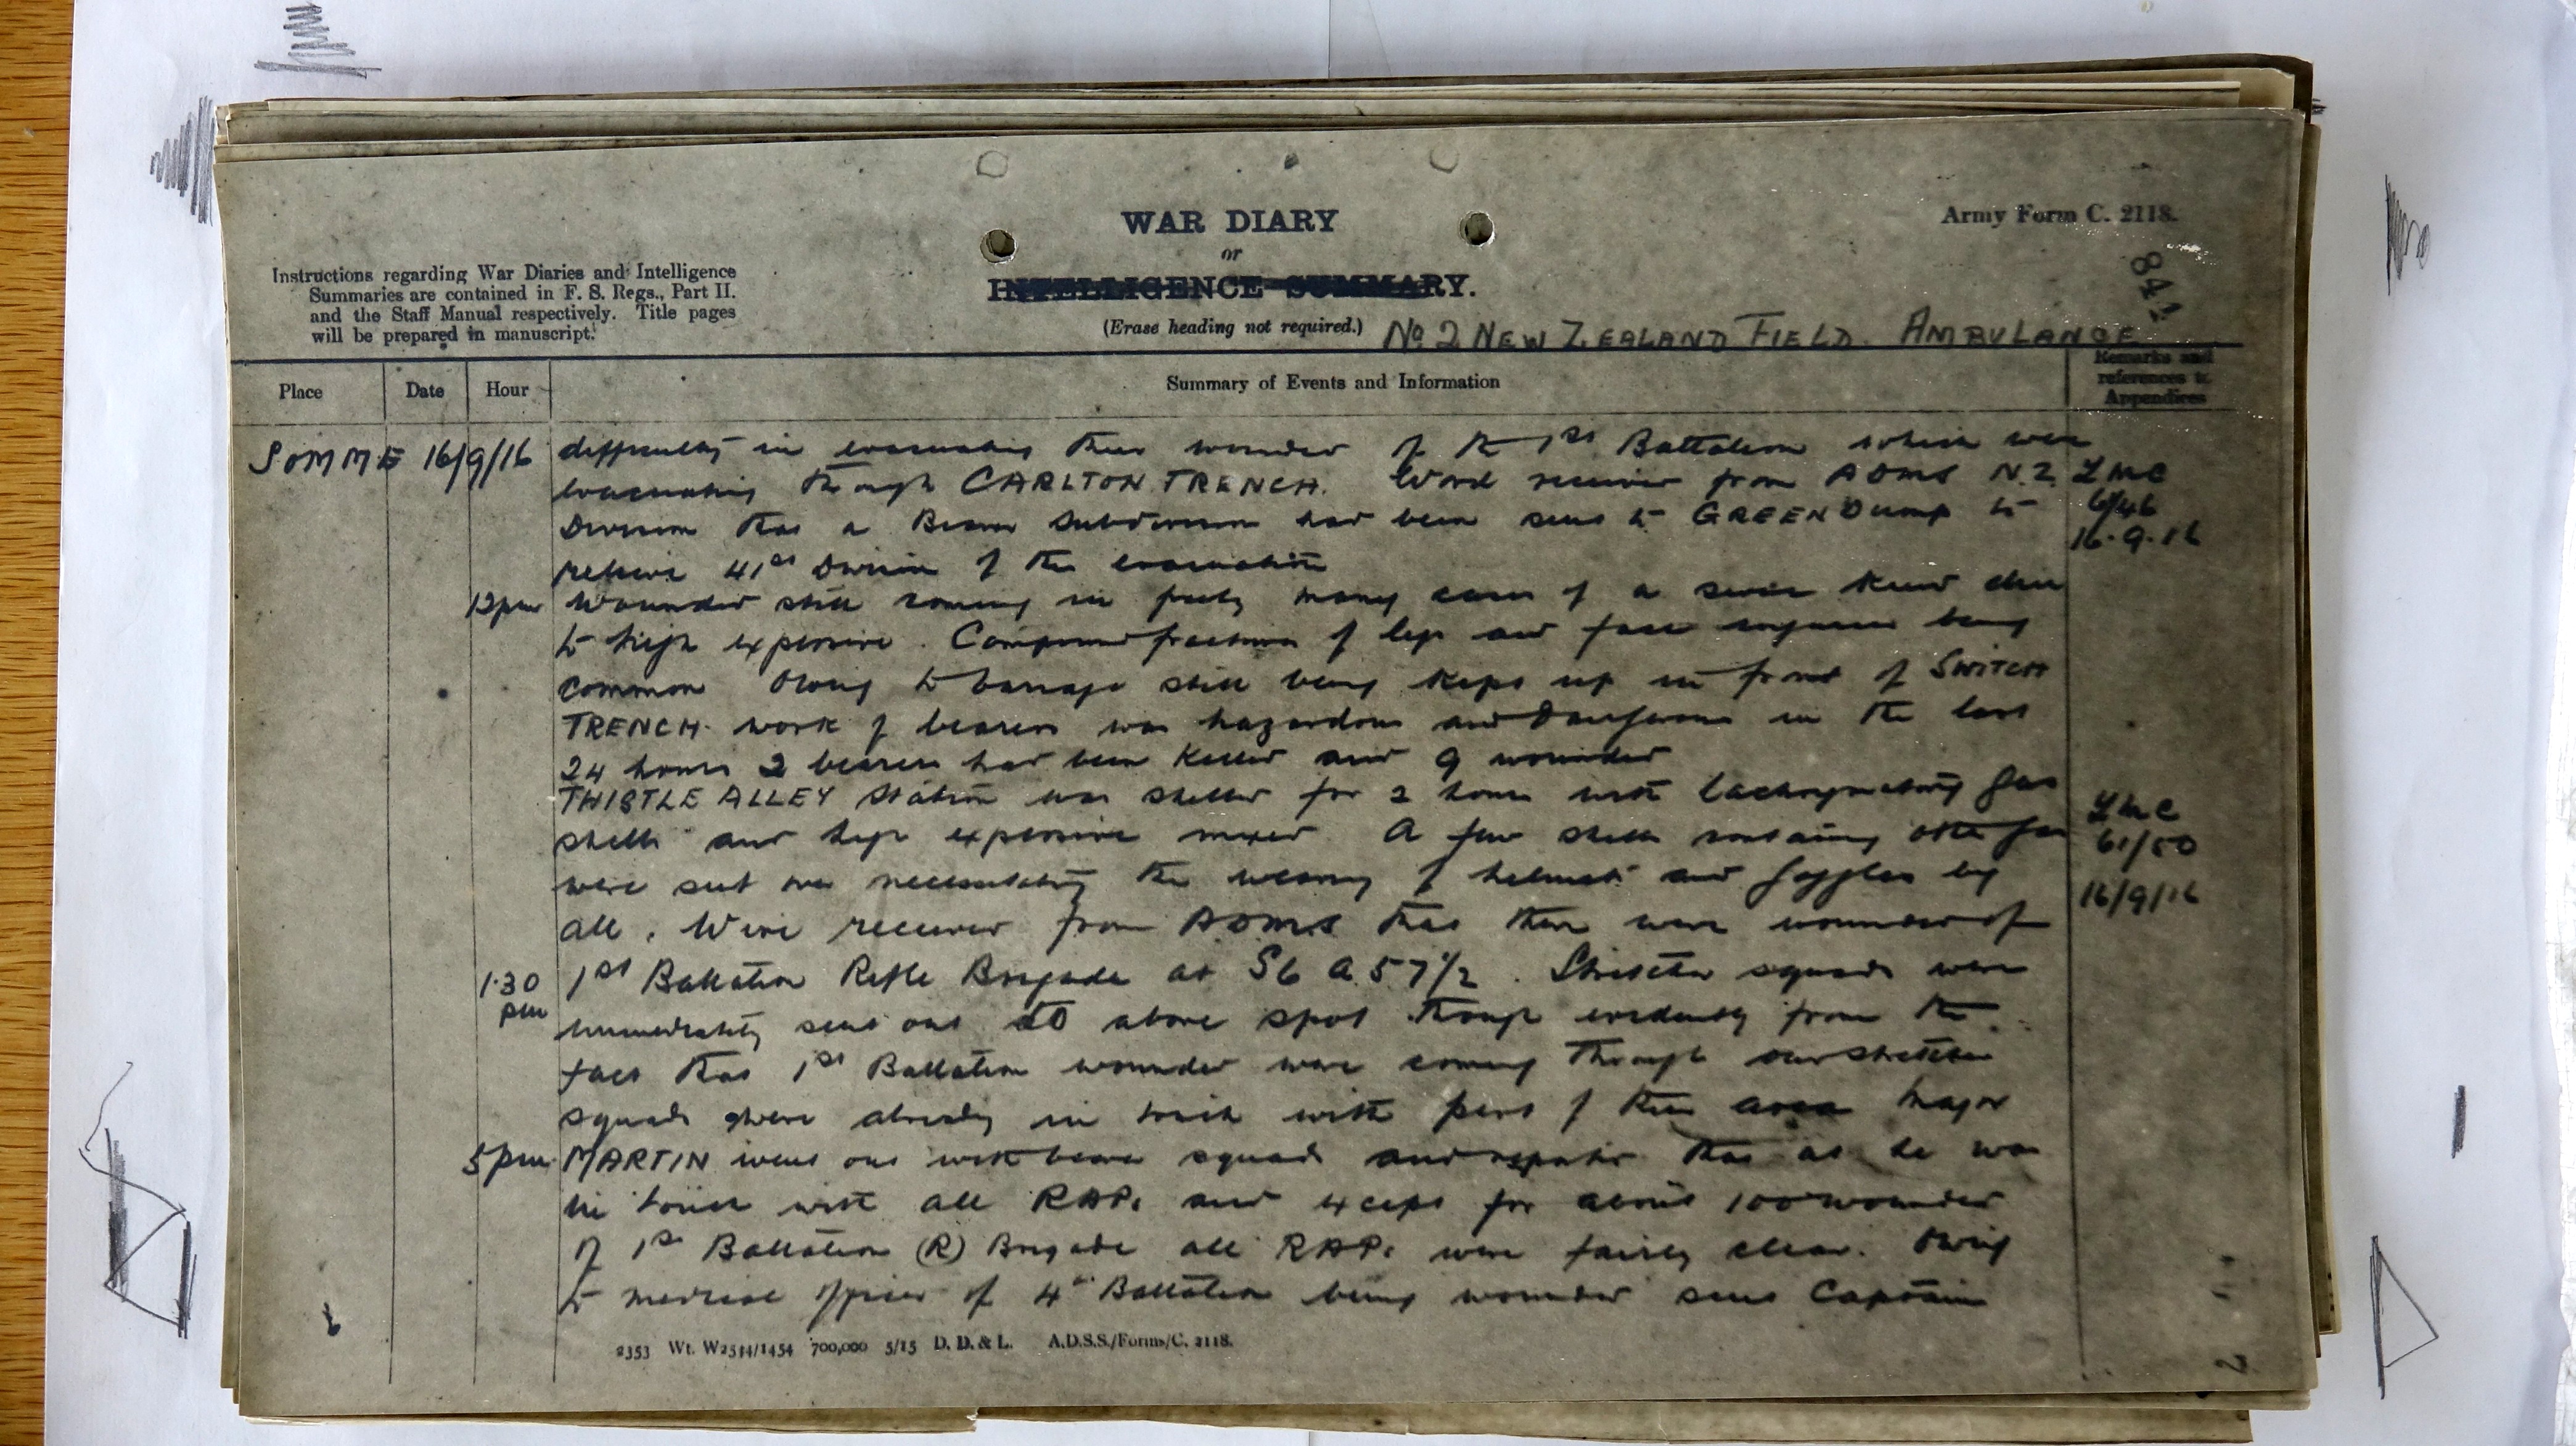 WAR DIARY
or
INTELLIGENCE SUMMARY.
(Erase heading not required.)
Army Form C. 2118.
841
Instructions regarding War Diaries and Intelligence
Summaries are contained in F. S. Regs., Part II.
and the Staff Manual respectively. Title pages
will be prepared in manuscript.
No. 2 NEW ZEALAND FIELD. AMBULANCE
Place Date Hour Summary of Events and Information Remarks and references to Appendices
SOMME 16/9/16 difficulty in evacuating their wounded of the 1st Battalion which were
evacuating through CARLTON TRENCH. Word received from ADMS N.Z.
Division that a Bearer Subdivision had been sent to GREEN Dump to
relieve 41st Division of the evacuation
12pm Wounded still coming in freely many cases of a severe kind due
to high explosive. Compound fractures of legs and face injuries being
common Owing to barrage still being kept up in front of SWITCH
TRENCH. work of bearers was hazardous and dangerous in the last
24 hours 2 bearers had been killed and 9 wounded
THISTLE ALLEY Station was shelled for 2 hours with lachrymatory gas
shells and high explosive mixed A few shells containing other gas
were sent over necessitating the wearing of helmets and goggles by
all. Wire received from ADMS that there were wounded of
1.30 pm 1st Battalion Rifle Brigade at S6 A 5 7½. Stretcher squads were
immediately sent out to above spot though evidently from the
fact that 1st Battalion wounded were coming through our stretcher
squads were already in touch with part of this area Major
5pm. MARTIN went out with bearer squads and reported that as he was
in touch with all RAPs and except for about 100 wounded
of 1st Battalion (R) Brigade all RAPs were fairly clear. Owing
to medical officer of 4th Battalion being wounded sent Captain
16.9.16
61/50
16/9/16
2353 Wt. W2544/1454 700,000 5/15 D. D. & L. A.D.S.S./Forms/C. 2118.